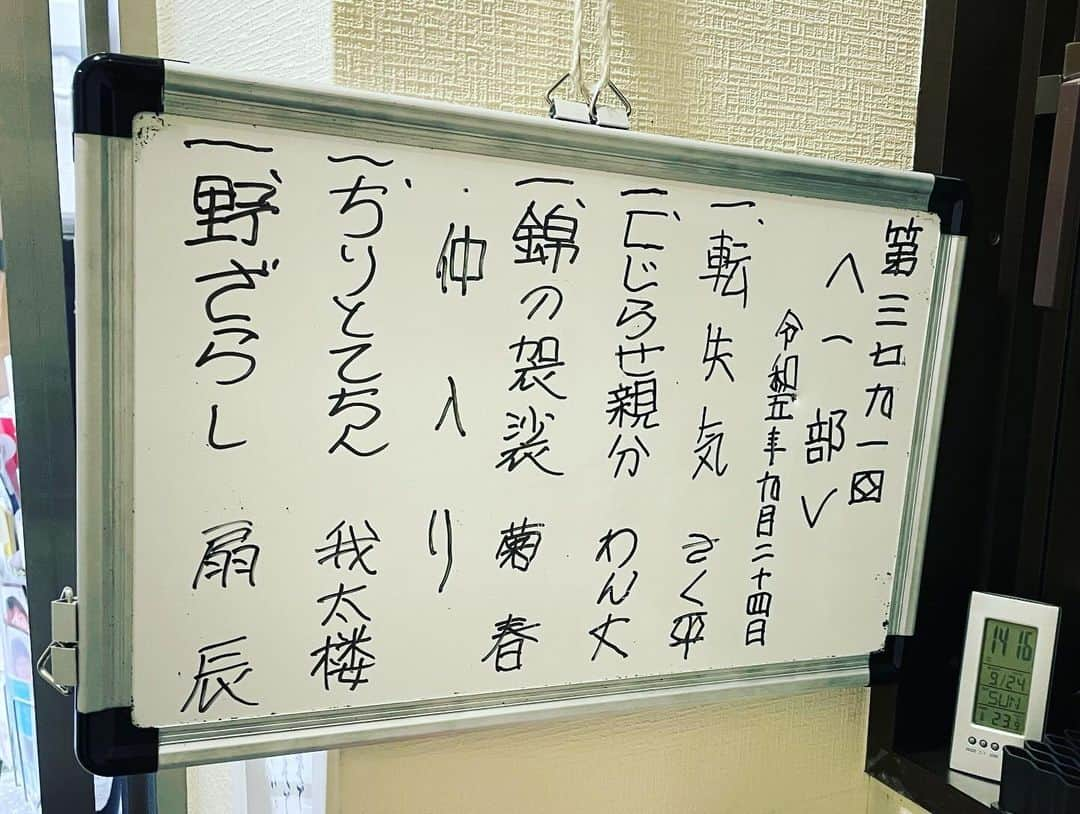 第三七九一回
〈一部〉
令和五年九月二十四日
一、転失気 さく平
一、こじらせ親分 わん丈
一、錦の袈裟 菊春
・仲入り
一、ちりとてちん 我太楼
一、野ざらし 扇辰
14 16
9/24
SUN
23.9